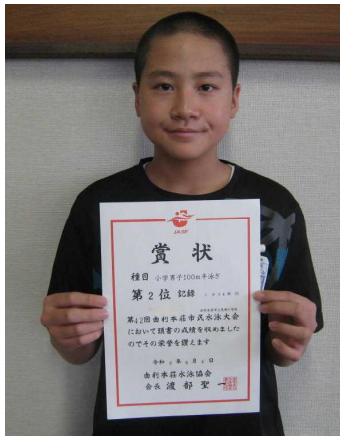 JASF
賞状
種目 小学男子100m平泳ぎ
第2位 記録
第42回由利本荘市民水泳大会
において頭書の成績を収めました
のでその栄誉を讃えます
由利本荘水泳協会
会長 渡部聖一